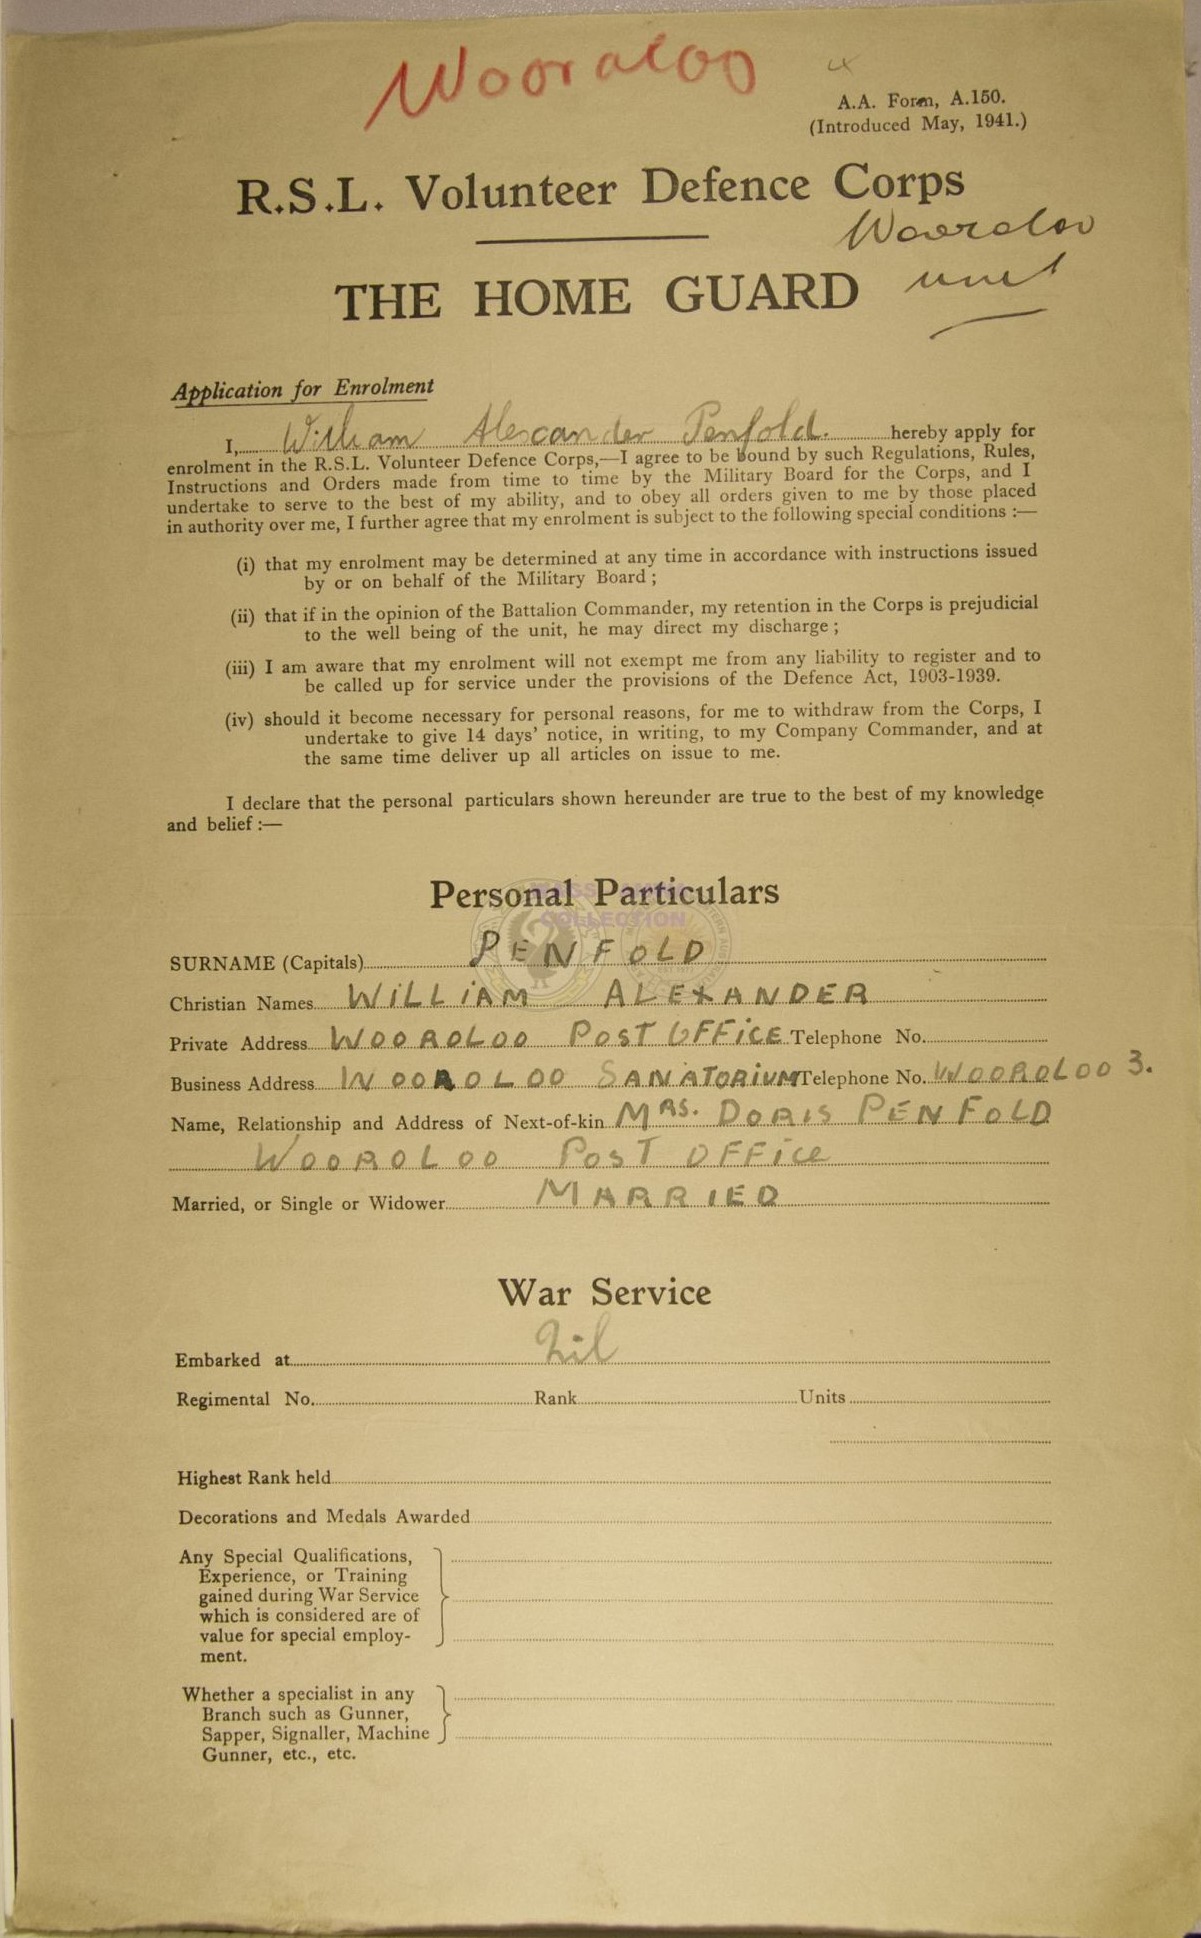 Wooraloo
A.A. Form, A.150.
(Introduced May, 1941.)
R.S.L. Volunteer Defence Corps
Wooraloo
unit
THE HOME GUARD
Application for Enrolment
I, William Alexander Penfold. hereby apply for
enrolment in the R.S.L. Volunteer Defence Corps,—I agree to be bound by such Regulations, Rules,
Instructions and Orders made from time to time by the Military Board for the Corps, and I
undertake to serve to the best of my ability, and to obey all orders given to me by those placed
in authority over me, I further agree that my enrolment is subject to the following special conditions :—
(i) that my enrolment may be determined at any time in accordance with instructions issued
by or on behalf of the Military Board ;
(ii) that if in the opinion of the Battalion Commander, my retention in the Corps is prejudicial
to the well being of the unit, he may direct my discharge ;
(iii) I am aware that my enrolment will not exempt me from any liability to register and to
be called up for service under the provisions of the Defence Act, 1903-1939.
(iv) should it become necessary for personal reasons, for me to withdraw from the Corps, I
undertake to give 14 days' notice, in writing, to my Company Commander, and at
the same time deliver up all articles on issue to me.
I declare that the personal particulars shown hereunder are true to the best of my knowledge
and belief :—
Personal Particulars
COLLECTION
SURNAME (Capitals) PENFOLD
Christian Names WILLIAM ALEXANDER
Private Address WOOROLOO POST OFFICE Telephone No.
Business Address WOOROLOO SANATORIUM Telephone No. WOOROLOO 3.
Name, Relationship and Address of Next-of-kin MRS. DORIS PENFOLD
WOOROLOO POST OFFICE
Married, or Single or Widower MARRIED
War Service
Embarked at Nil
Regimental No. Rank Units
Highest Rank held
Decorations and Medals Awarded
Any Special Qualifications,
Experience, or Training
gained during War Service
which is considered are of
value for special employ-
ment.
Whether a specialist in any
Branch such as Gunner,
Sapper, Signaller, Machine
Gunner, etc., etc.